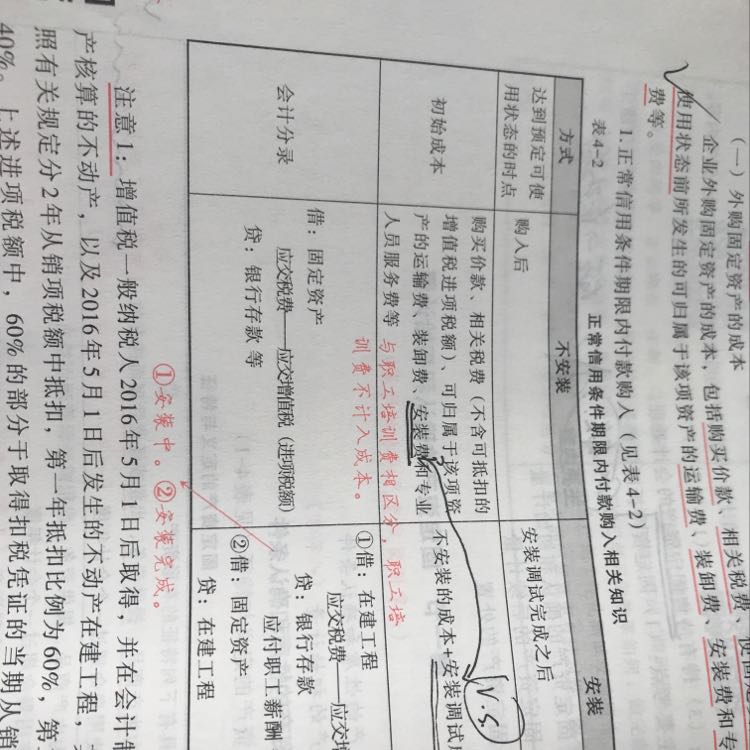 （一）外购固定资产的成本
企业外购固定资产的成本，包括购买价款、相关税费、使
使用状态前所发生的可归属于该项资产的运输费、装卸费、安装费和专
费等。
1.正常信用条件期限内付款购入（见表4-2）
表4-2 正常信用条件期限内付款购入相关知识
方式 不安装 安装
达到预定可使
用状态的时点
购入后
安装调试完成之后
初始成本
购买价款、相关税费（不含可抵扣的
增值税进项税额）、可归属于该项资
产的运输费、装卸费、安装费和专业
人员服务费等
与职工培训费相区分，职工培
训费不计入成本。
不安装的成本+安装调试
V.S.
会计分录
借：固定资产
应交税费——应交增值税（进项税额）
贷：银行存款等
①借：在建工程
应交税费——应交
贷：银行存款
应付职工薪酬
②借：固定资产
贷：在建工程
①安装中。②安装完成。
注意1：增值税一般纳税人2016年5月1日后取得，并在会计制
产核算的不动产，以及2016年5月1日后发生的不动产在建工程，
照有关规定分2年从销项税额中抵扣，第一年抵扣比例为60%，第
40%。上述进项税额中，60%的部分于取得扣税凭证的当期从销